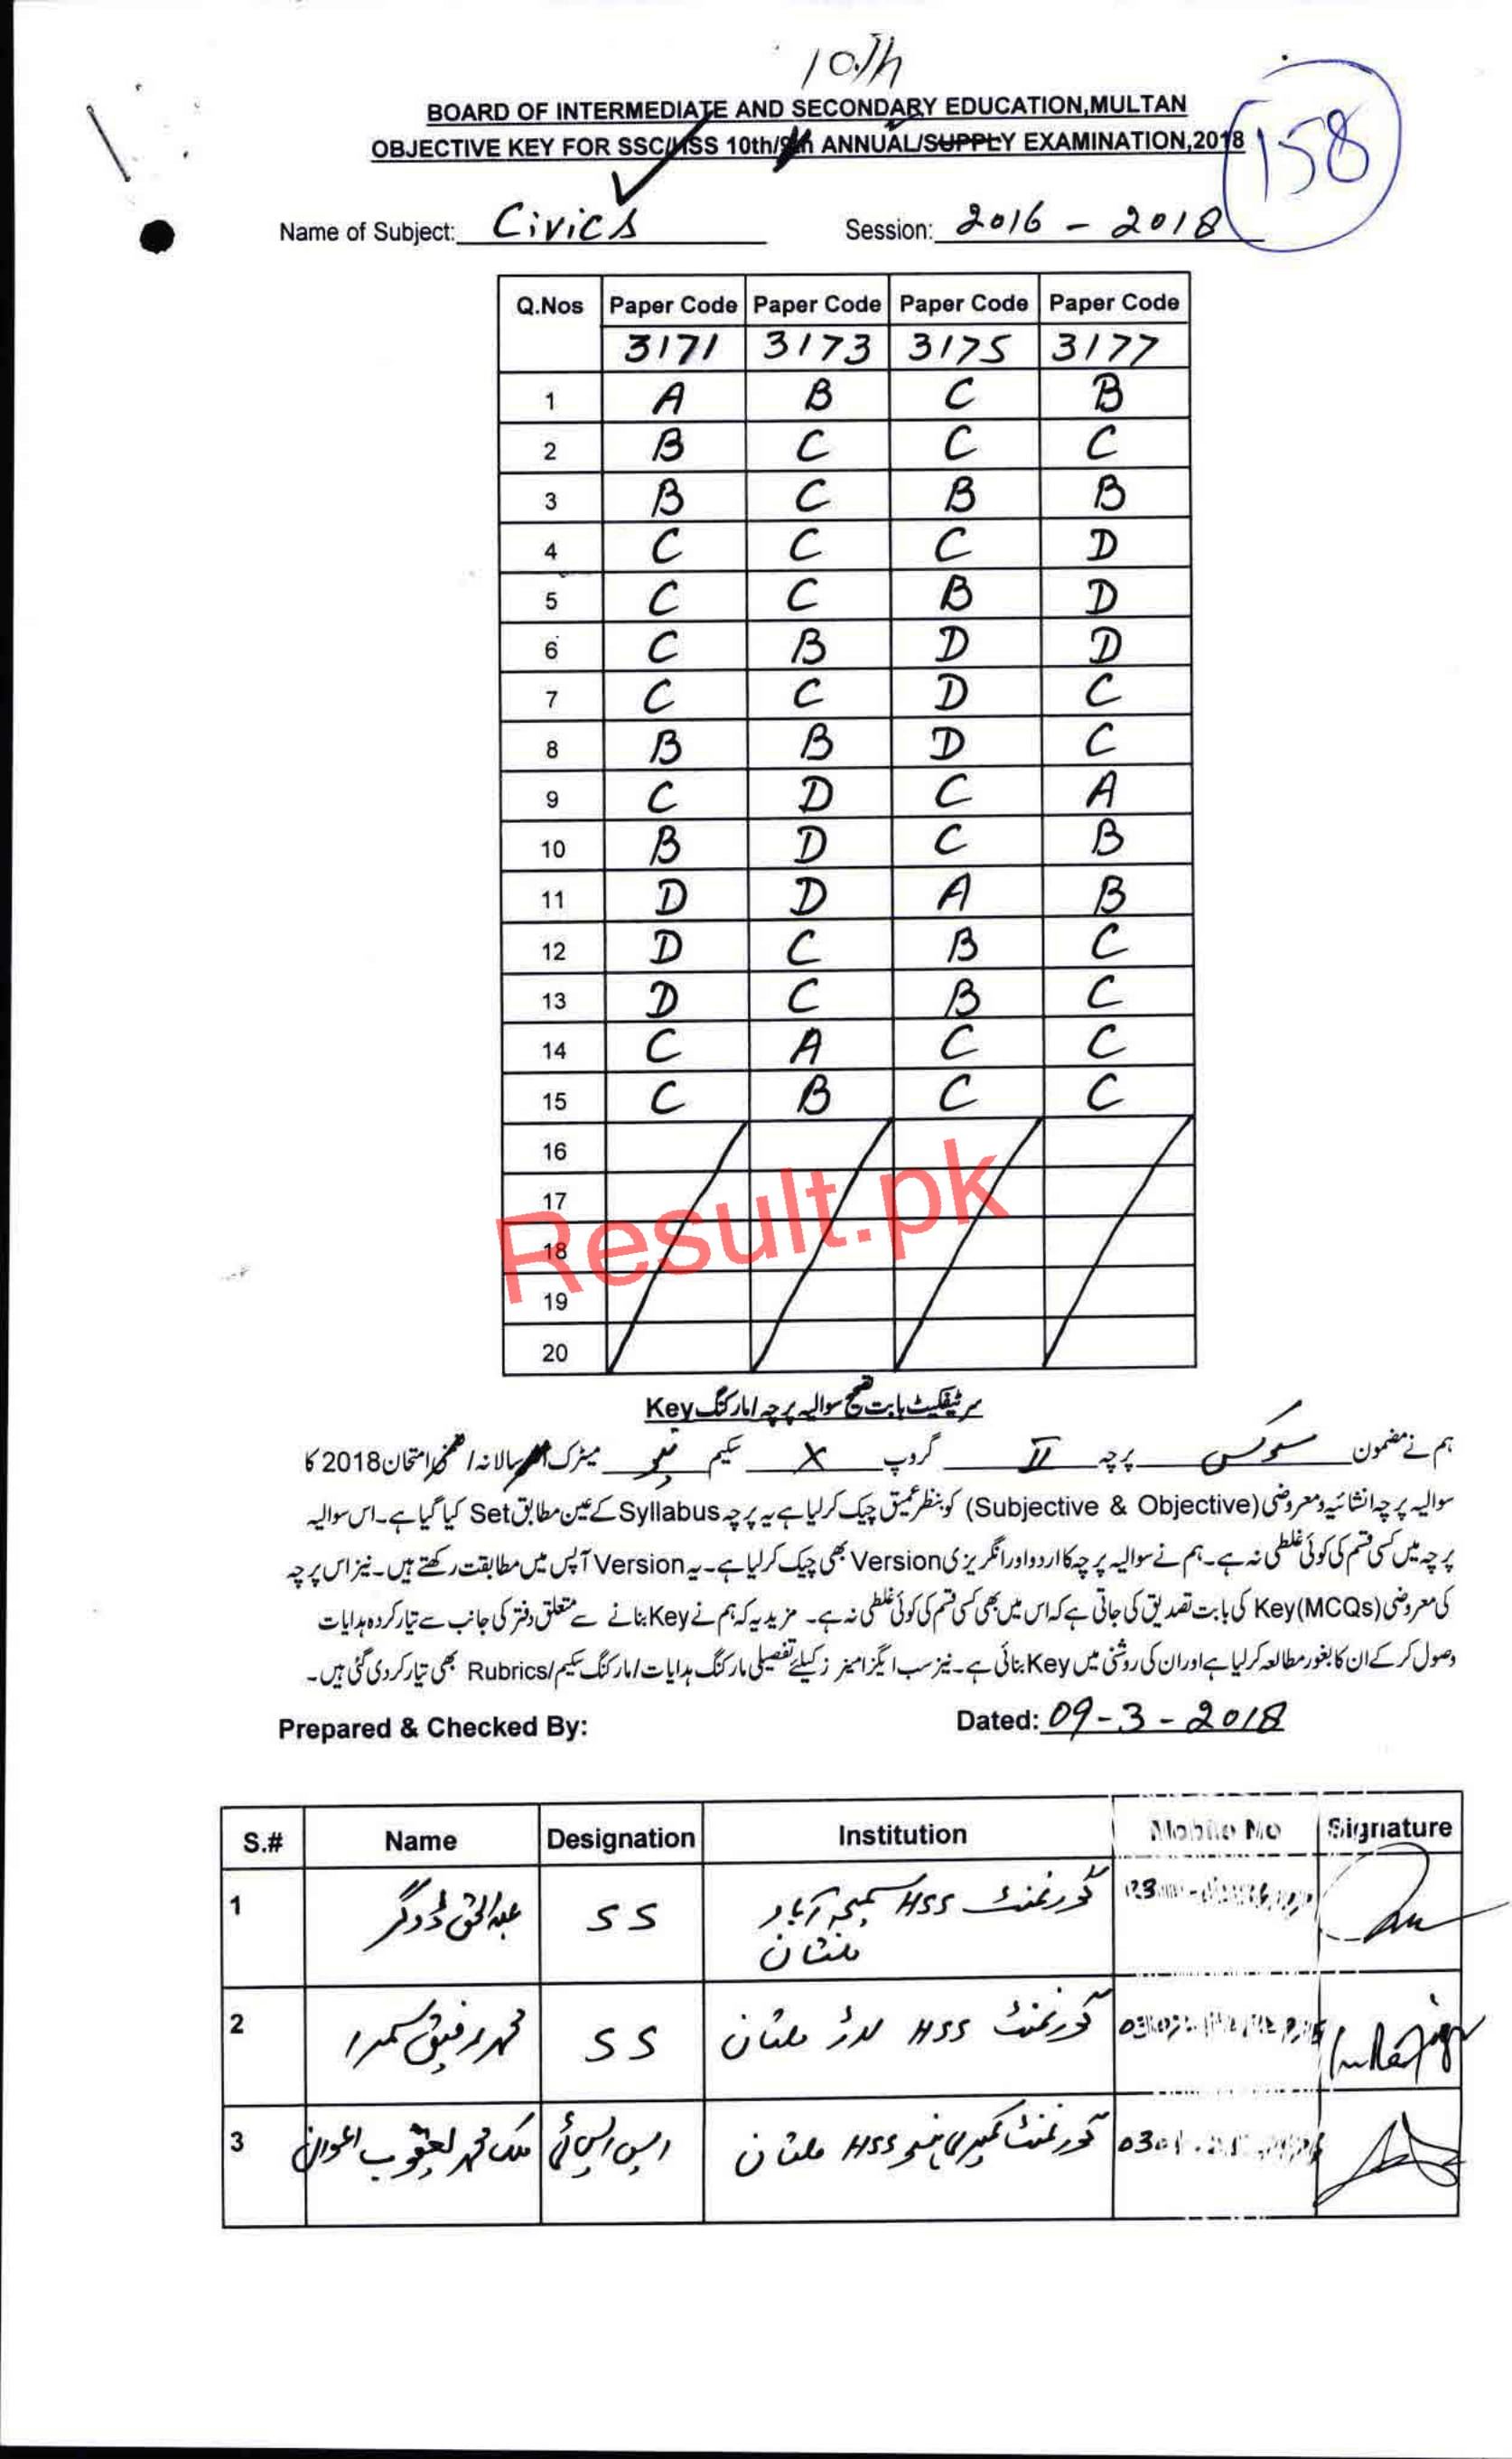 10th
BOARD OF INTERMEDIATE AND SECONDARY EDUCATION,MULTAN
OBJECTIVE KEY FOR SSC/HSS 10th/9th ANNUAL/SUPPLY EXAMINATION,2018
158
Name of Subject: Civics Session: 2016 - 2018
Q.Nos Paper Code Paper Code Paper Code Paper Code
3171 3173 3175 3177
1 A B C B
2 B C C C
3 B C B B
4 C C C D
5 C C B D
6 C B D D
7 C C D C
8 B B D C
9 C D C A
10 B D C B
11 D D A B
12 D C B C
13 D C B C
14 C A C C
15 C B C C
16
17
18
19
20
Result.pk
سرٹیفکیٹ بابت تصحیح سوالیہ پرچہ / مارکنگ Key
ہم نے مضمون سوکس پرچہ II گروپ X سکیم نیو میٹرک سالانہ / ضمنی امتحان 2018 کا
سوالیہ پرچہ انشائیہ و معروضی (Subjective & Objective) کو بنظر عمیق چیک کر لیا ہے یہ پرچہ Syllabus کے عین مطابق Set کیا گیا ہے۔ اس سوالیہ
پرچہ میں کسی قسم کی کوئی غلطی نہ ہے۔ ہم نے سوالیہ پرچہ کا اردو اور انگریزی Version بھی چیک کر لیا ہے۔ یہ Version آپس میں مطابقت رکھتے ہیں۔ نیز اس پرچہ
کی معروضی Key(MCQs) کی بابت تصدیق کی جاتی ہے کہ اس میں بھی کسی قسم کی کوئی غلطی نہ ہے۔ مزید یہ کہ ہم نے Key بنانے سے متعلق دفتر کی جانب سے تیار کردہ ہدایات
وصول کر کے ان کا بغور مطالعہ کر لیا ہے اور ان کی روشنی میں Key بنائی ہے۔ نیز سب ایگزامینرز کیلئے تفصیلی مارکنگ ہدایات / مارکنگ سکیم / Rubrics بھی تیار کر دی گئی ہیں۔
Prepared & Checked By: Dated: 09-3-2018
S.# Name Designation Institution Mobile No Signature
1 عبدالحق ڈوگر SS گورنمنٹ HSS آباد
ملتان
2 محمد رفیق SS گورنمنٹ HSS ملتان
3 ملک محمد یعقوب اعوان ایس ایس ٹی گورنمنٹ HSS ملتان